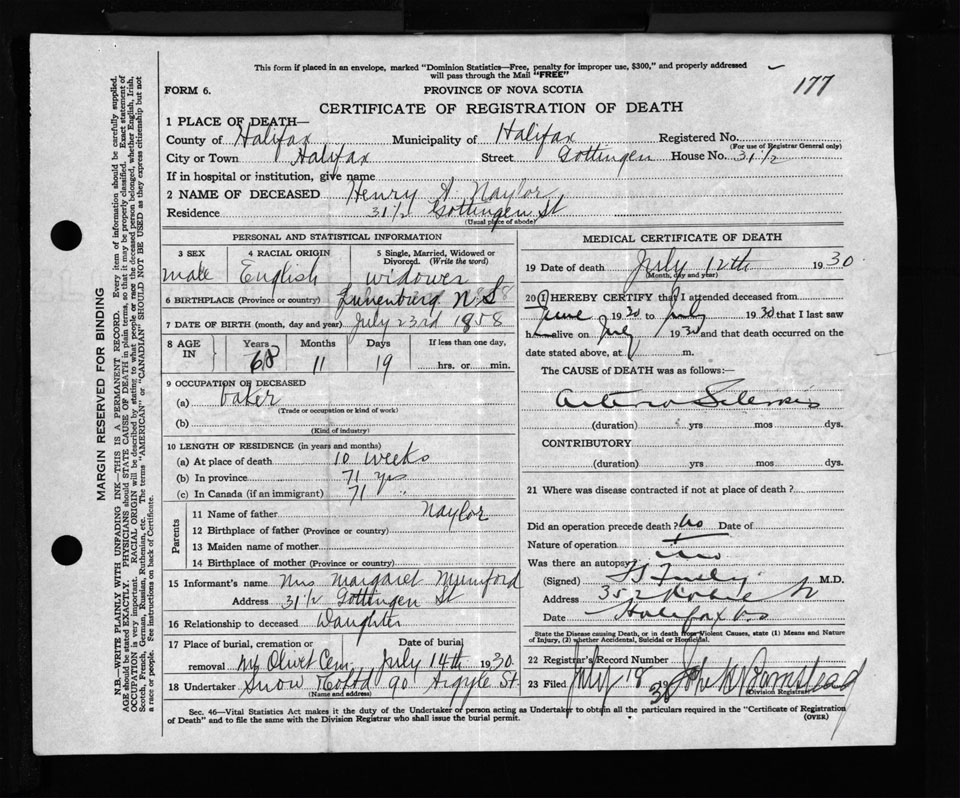 This form if placed in an envelope, marked "Dominion Statistics—Free, penalty for improper use, $300," and properly addressed
will pass through the Mail "FREE"
177
FORM 6.
PROVINCE OF NOVA SCOTIA
CERTIFICATE OF REGISTRATION OF DEATH
1 PLACE OF DEATH—
County of Halifax Municipality of Halifax Registered No.
(For use of Registrar General only)
City or Town Halifax Street Gottingen House No. 31½
If in hospital or institution, give name
2 NAME OF DECEASED Henry A. Naylor
Residence 31½ Gottingen St
(Usual place of abode)
PERSONAL AND STATISTICAL INFORMATION
3 SEX 4 RACIAL ORIGIN 5 Single, Married, Widowed or
Divorced. (Write the word)
male English widower
6 BIRTHPLACE (Province or country) Lunenburg N S
7 DATE OF BIRTH (month, day and year) July 23rd 1858
8 AGE IN Years Months Days If less than one day,
68 11 19 hrs. or min.
9 OCCUPATION OF DECEASED
(a) baker
(Trade or occupation or kind of work)
(b)
(Kind of industry)
10 LENGTH OF RESIDENCE (in years and months)
(a) At place of death 10 weeks
(b) In province 71 yrs
(c) In Canada (if an immigrant) 71 "
Parents
11 Name of father Naylor
12 Birthplace of father (Province or country)
13 Maiden name of mother
14 Birthplace of mother (Province or country)
15 Informant's name Mrs Margaret Mumford
Address 31½ Gottingen St
16 Relationship to deceased Daughter
17 Place of burial, cremation or Date of burial
removal Mt Olivet Cem. July 14th 1930
18 Undertaker Snow & Co Ltd 90 Argyle St.
(Name and address)
MEDICAL CERTIFICATE OF DEATH
19 Date of death July 12th 1930
(Month, day and year)
20 I HEREBY CERTIFY that I attended deceased from
June 1930 to July 1930 that I last saw
h alive on July 1930 and that death occurred on the
date stated above, at m.
The CAUSE of DEATH was as follows:—
Arterio Sclerosis
(duration) yrs mos dys.
CONTRIBUTORY
(duration) yrs mos dys.
21 Where was disease contracted if not at place of death?
Did an operation precede death? no Date of
Nature of operation
Was there an autopsy? no
(Signed) M.D.
Address 352 St
Date Halifax
State the Disease causing Death, or in death from Violent Causes, state (1) Means and Nature
of Injury, (2) whether Accidental, Suicidal or Homicidal.
22 Registrar's Record Number
23 Filed July 18 1930 John W Barnstead
(Division Registrar)
Sec. 46—Vital Statistics Act makes it the duty of the Undertaker or person acting as Undertaker to obtain all the particulars required in the "Certificate of Registration
of Death" and to file the same with the Division Registrar who shall issue the burial permit.
(OVER)
MARGIN RESERVED FOR BINDING
N.B.—WRITE PLAINLY WITH UNFADING INK—THIS IS A PERMANENT RECORD. Every item of information should be carefully supplied.
AGE should be stated EXACTLY. PHYSICIANS should STATE CAUSE OF DEATH in plain terms, so that it may be properly classified. Exact statement of
OCCUPATION is very important. RACIAL ORIGIN will be described by stating to what people or race the deceased person belonged, whether English, Irish,
Scotch, French, German, Russian, Ruthenian, etc. The terms "AMERICAN" or "CANADIAN" SHOULD NOT BE USED as they express citizenship but not
a race or people. See instructions on back of Certificate.